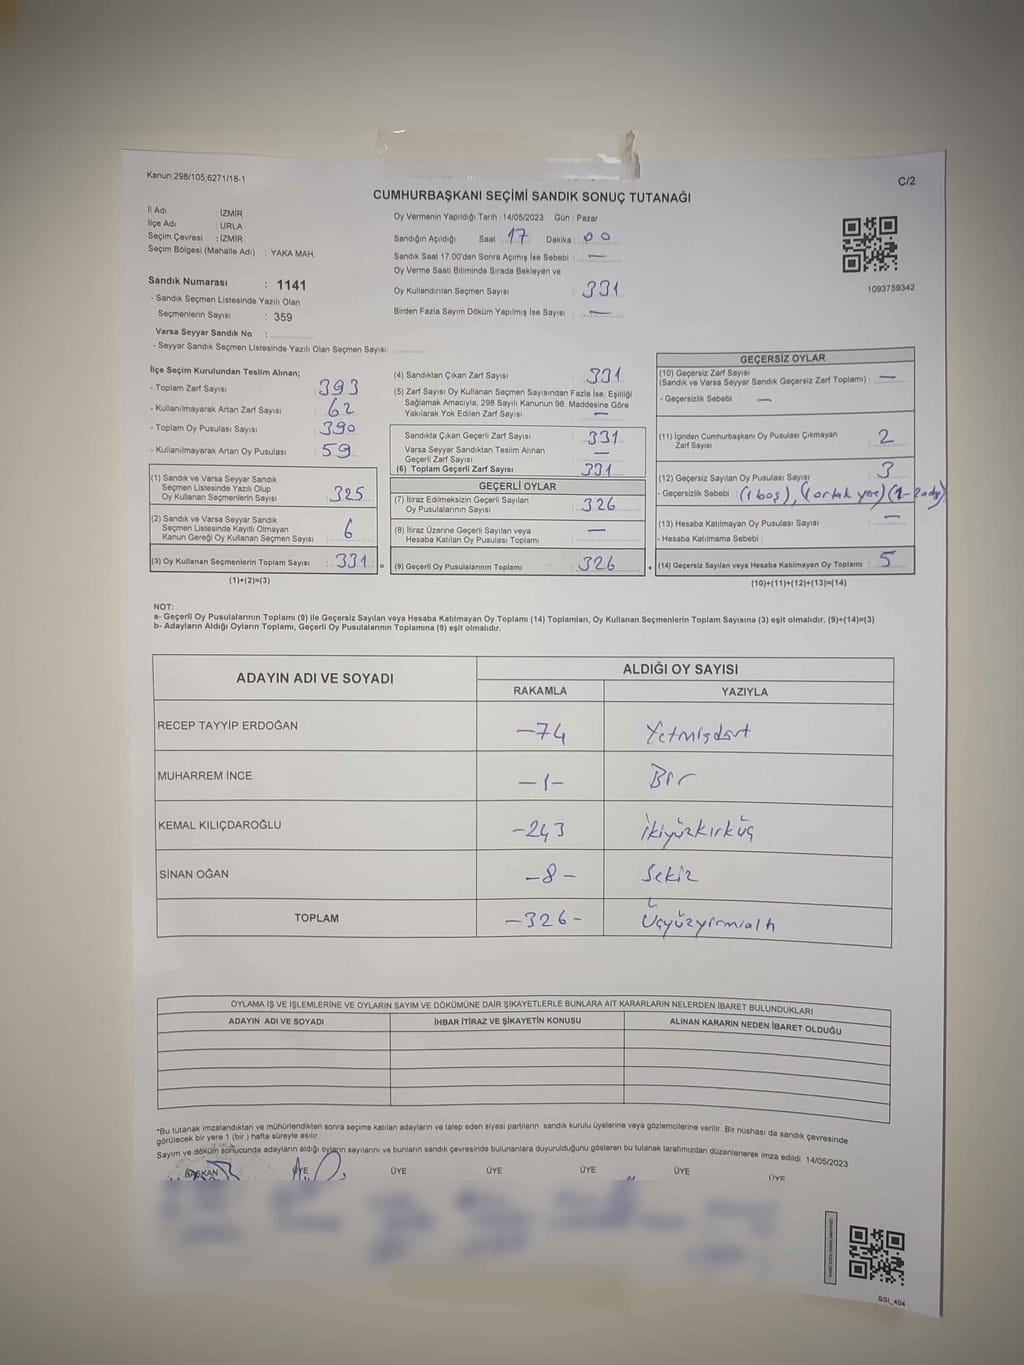 Kanun:298/105,6271/18-1
C/2
CUMHURBAŞKANI SEÇİMİ SANDIK SONUÇ TUTANAĞI
İl Adı : İZMİR
İlçe Adı : URLA
Seçim Çevresi : İZMİR
Seçim Bölgesi (Mahalle Adı) : YAKA MAH.
Sandık Numarası : 1141
- Sandık Seçmen Listesinde Yazılı Olan
Seçmenlerin Sayısı : 359
Varsa Seyyar Sandık No :
- Seyyar Sandık Seçmen Listesinde Yazılı Olan Seçmen Sayısı:
Oy Vermenin Yapıldığı Tarih : 14/05/2023 Gün : Pazar
Sandığın Açıldığı Saat : 17 Dakika : 00
Sandık Saat 17.00'den Sonra Açımış İse Sebebi : —
Oy Verme Saati Bitiminde Sırada Bekleyen ve
Oy Kullandırılan Seçmen Sayısı : 331
Birden Fazla Sayım Döküm Yapılmış İse Sayısı : —
1093759342
İlçe Seçim Kurulundan Teslim Alınan;
- Toplam Zarf Sayısı : 393
- Kullanılmayarak Artan Zarf Sayısı : 62
- Toplam Oy Pusulası Sayısı : 390
- Kullanılmayarak Artan Oy Pusulası : 59
(1) Sandık ve Varsa Seyyar Sandık
Seçmen Listesinde Yazılı Olup
Oy Kullanan Seçmenlerin Sayısı : 325
(2) Sandık ve Varsa Seyyar Sandık
Seçmen Listesinde Kayıtlı Olmayan
Kanun Gereği Oy Kullanan Seçmen Sayısı : 6
(3) Oy Kullanan Seçmenlerin Toplam Sayısı : 331 =
(1)+(2)=(3)
(4) Sandıktan Çıkan Zarf Sayısı : 331
(5) Zarf Sayısı Oy Kullanan Seçmen Sayısından Fazla İse, Eşitliği
Sağlamak Amacıyla; 298 Sayılı Kanunun 98. Maddesine Göre
Yakılarak Yok Edilen Zarf Sayısı : —
Sandıkta Çıkan Geçerli Zarf Sayısı : 331
Varsa Seyyar Sandıktan Teslim Alınan
Geçerli Zarf Sayısı : —
(6) Toplam Geçerli Zarf Sayısı : 331
GEÇERLİ OYLAR
(7) İtiraz Edilmeksizin Geçerli Sayılan
Oy Pusulalarının Sayısı : 326
(8) İtiraz Üzerine Geçerli Sayılan veya
Hesaba Katılan Oy Pusulası Toplamı : —
(9) Geçerli Oy Pusulalarının Toplamı : 326 +
GEÇERSİZ OYLAR
(10) Geçersiz Zarf Sayısı
(Sandık ve Varsa Seyyar Sandık Geçersiz Zarf Toplamı) : —
- Geçersizlik Sebebi : —
(11) İçinden Cumhurbaşkanı Oy Pusulası Çıkmayan
Zarf Sayısı : 2
(12) Geçersiz Sayılan Oy Pusulası Sayısı : 3
- Geçersizlik Sebebi : (1 boş), (1 ortak yer)
(13) Hesaba Katılmayan Oy Pusulası Sayısı : —
- Hesaba Katılmama Sebebi :
(14) Geçersiz Sayılan veya Hesaba Katılmayan Oy Toplamı : 5
(10)+(11)+(12)+(13)=(14)
NOT:
a- Geçerli Oy Pusulalarının Toplamı (9) ile Geçersiz Sayılan veya Hesaba Katılmayan Oy Toplamı (14) Toplamları, Oy Kullanan Seçmenlerin Toplam Sayısına (3) eşit olmalıdır. (9)+(14)=(3)
b- Adayların Aldığı Oyların Toplamı, Geçerli Oy Pusulalarının Toplamına (9) eşit olmalıdır.
ADAYIN ADI VE SOYADI
ALDIĞI OY SAYISI
RAKAMLA YAZIYLA
RECEP TAYYİP ERDOĞAN —74 Yetmişdört
MUHARREM İNCE —1— Bir
KEMAL KILIÇDAROĞLU —243 İkiyüzkırküç
SİNAN OĞAN —8— Sekiz
TOPLAM —326— Üçyüzyirmialtı
OYLAMA İŞ VE İŞLEMLERİNE VE OYLARIN SAYIM VE DÖKÜMÜNE DAİR ŞİKAYETLERLE BUNLARA AİT KARARLARIN NELERDEN İBARET BULUNDUKLARI
ADAYIN ADI VE SOYADI İHBAR İTİRAZ VE ŞİKAYETİN KONUSU ALINAN KARARIN NEDEN İBARET OLDUĞU
*Bu tutanak imzalandıktan ve mühürlendikten sonra seçime katılan adayların ve talep eden siyasi partilerin sandık kurulu üyelerine veya gözlemcilerine verilir. Bir nüshası da sandık çevresinde
görülecek bir yere 1 (bir) hafta süreyle asılır.
Sayım ve döküm sonucunda adayların aldığı oyların sayılarını ve bunların sandık çevresinde bulunanlara duyurulduğunu gösteren bu tutanak tarafımızdan düzenlenerek imza edildi. 14/05/2023
BAŞKAN ÜYE ÜYE ÜYE ÜYE ÜYE ÜYE
SSI_404